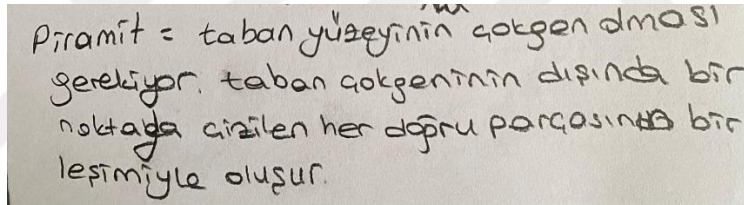 Piramit = taban yüzeyinin çokgen olması
gerekiyor. taban çokgeninin dışında bir
noktada çizilen her doğru parçasında bir
leşimiyle oluşur.